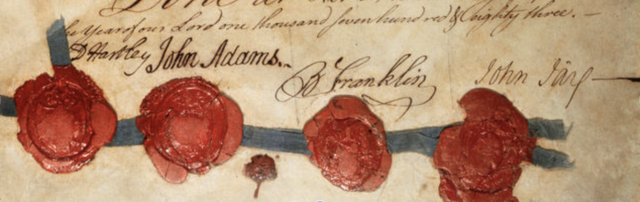 Year of our Lord one thousand seven hundred & eighty three. —
D Hartley John Adams. B Franklin John Jay —